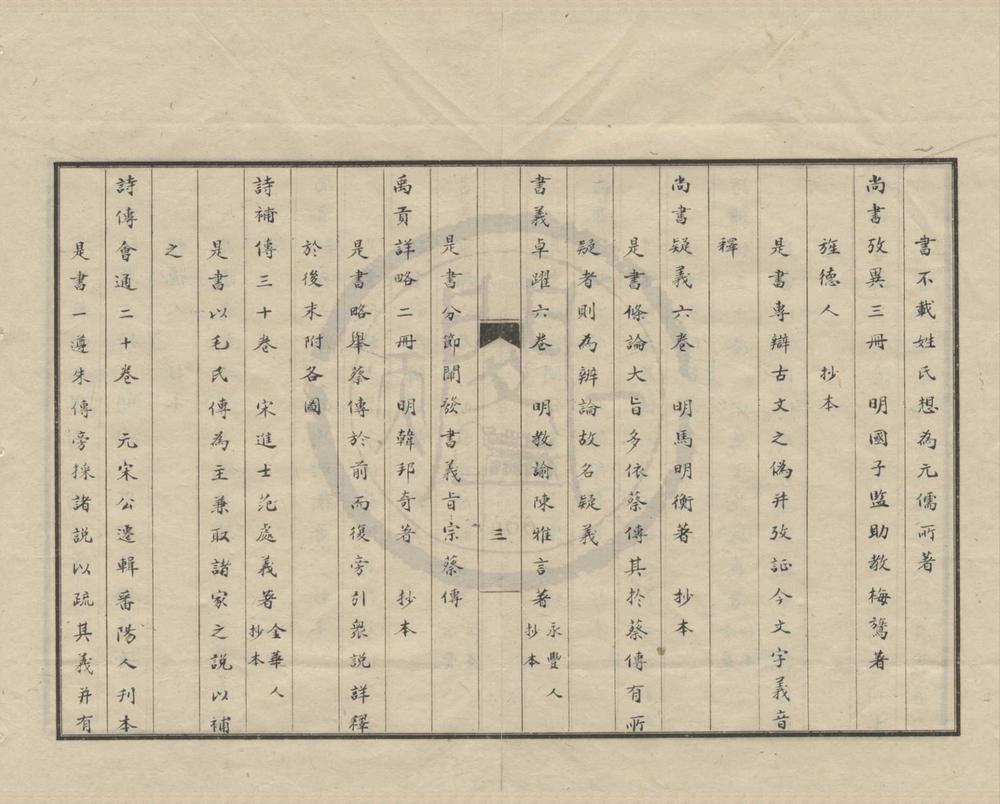 書不載姓氏想為元儒所著
尚書攷異三冊　明國子監助教梅鷟著
旌德人　抄本
是書專辯古文之偽并攷証今文字義音
釋
尚書疑義六卷　明馬明衡著　抄本
是書條論大旨多依蔡傳其於蔡傳有所
疑者則為辨論故名疑義
書義卓躍六卷　明教諭陳雅言著永豐人抄本
三
是書分節闡發書義旨宗蔡傳
禹貢詳略二冊　明韓邦奇著　抄本
是書略舉蔡傳於前而復旁引衆說詳釋
於後末附各圖
詩補傳三十卷　宋進士范處義著金華人抄本
是書以毛氏傳為主兼取諸家之說以補
之
詩傳會通二十卷　元宋公遷輯番陽人刊本
是書一遵朱傳旁採諸說以疏其義并有